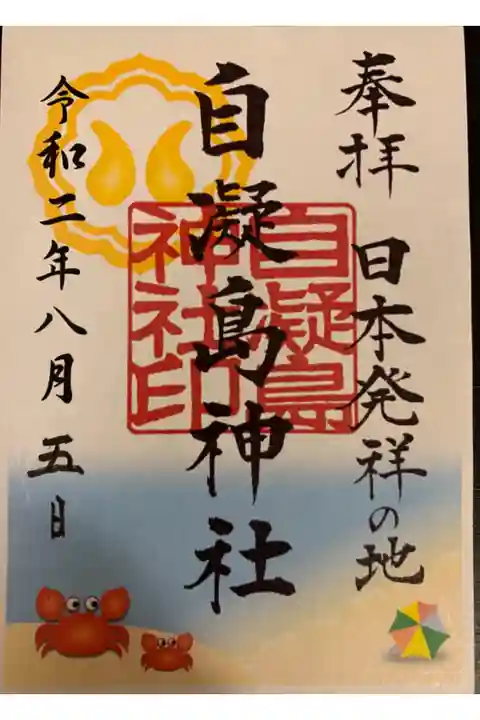 奉拝 日本発祥の地
自凝島神社
自凝島
神社印
令和二年八月五日